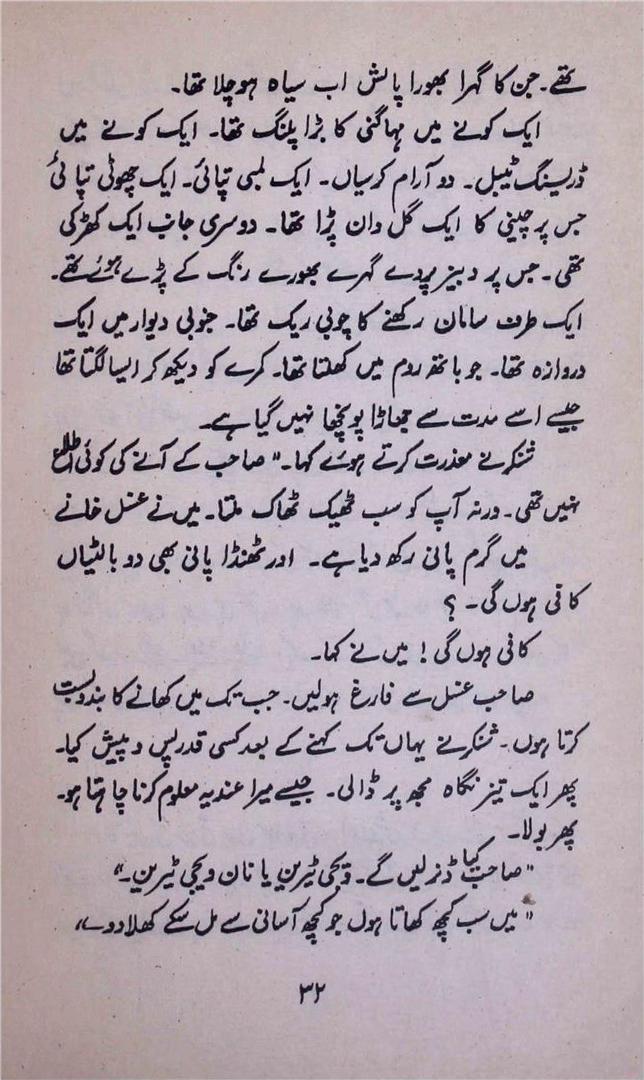 تھے۔ جن کا گہرا بھورا پالش اب سیاہ ہو چلا تھا۔
ایک کونے میں مہاگنی کا بڑا پلنگ تھا۔ ایک کونے میں
ڈریسنگ ٹیبل۔ دو آرام کرسیاں۔ ایک لمبی تپائی۔ ایک چھوٹی تپائی
جس پر چینی کا ایک گل دان پڑا تھا۔ دوسری جانب ایک کھڑکی
تھی۔ جس پر دبیز پردے گہرے بھورے رنگ کے پڑے ہوئے تھے۔
ایک طرف سامان رکھنے کا چوبی ریک تھا۔ جنوبی دیوار میں ایک
دروازہ تھا۔ جو باتھ روم میں کھلتا تھا۔ کمرے کو دیکھ کر ایسا لگتا تھا
جیسے اسے مدت سے جھاڑا پونچھا نہیں گیا ہے۔
شنکر نے معذرت کرتے ہوئے کہا۔ "صاحب کے آنے کی کوئی اطلاع
نہیں تھی۔ ورنہ آپ کو سب ٹھیک ٹھاک ملتا۔ میں نے غسل خانے
میں گرم پانی رکھ دیا ہے۔ اور ٹھنڈا پانی بھی دو بالٹیاں
کافی ہوں گی۔ ؟
کافی ہوں گی! میں نے کہا۔
صاحب غسل سے فارغ ہولیں۔ جب تک میں کھانے کا بندوبست
کرتا ہوں۔ شنکر نے یہاں تک کہنے کے بعد کسی قدر پس و پیش کیا۔
پھر ایک تیز نگاہ مجھ پر ڈالی۔ جیسے میرا عندیہ معلوم کرنا چاہتا ہو۔
پھر بولا۔
"صاحب کیا ڈنر لیں گے۔ ویجی ٹیرین یا نان ویجی ٹیرین۔"
"میں سب کچھ کھاتا ہوں جو کچھ آسانی سے مل سکے کھلا دو۔"
۳۲